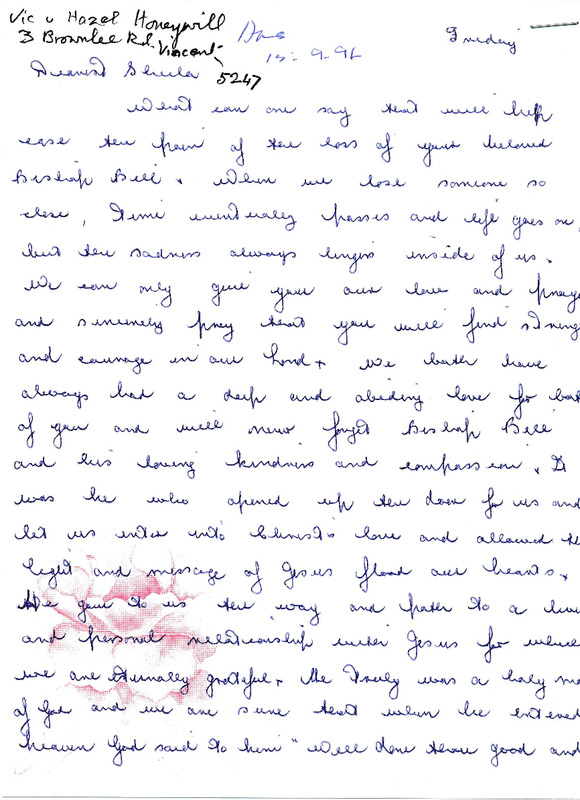 Vic & Hazel Honeywill
3 Brownlee Rd. Vincent
5247
Ans
15-9-92
Friday
Dearest Sheila
What can one say that will help
ease the pain of the loss of your beloved
Bishop Bill. When we lose someone so
close, Time eventually passes and life goes on,
but the sadness always lingers inside of us.
We can only give you our love and praye
and sincerely pray that you will find streng
and courage in our Lord. We both have
always had a deep and abiding love for bot
of you and will never forget Bishop Bill
and his loving kindness and compassion. It
was he who opened up the door for us and
let us enter into Christ's love and allowed the
light and message of Jesus flood our hearts.
He gave to us the way and path to a live
and personal relationship with Jesus for which
we are eternally grateful. He Truly was a holy ma
of God and we are sure that when he entered
heaven God said to him "Well done thou good and